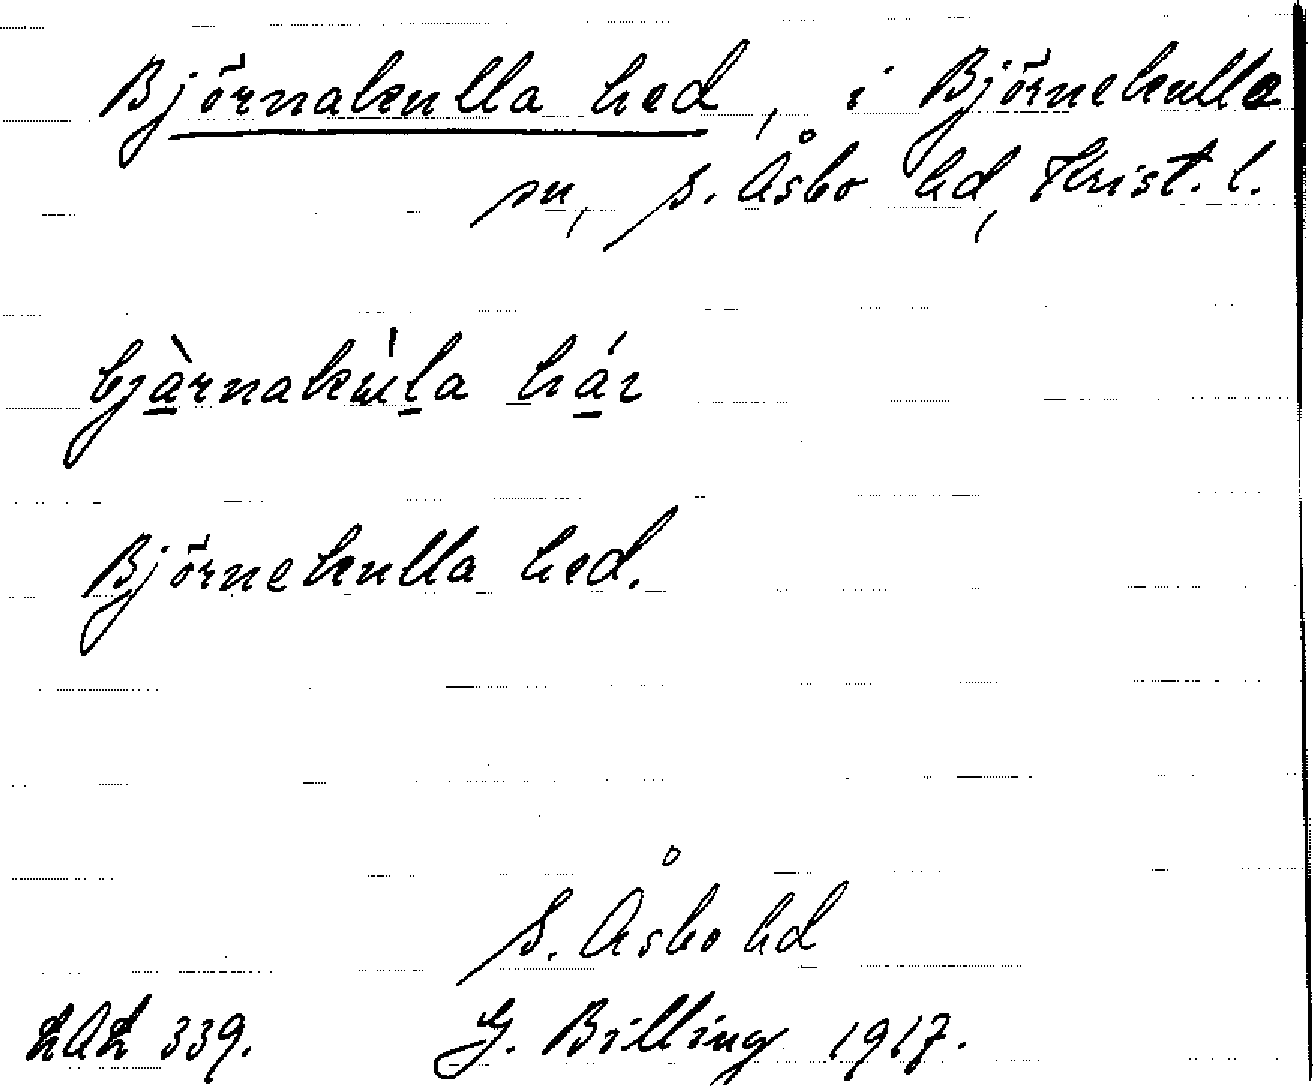 Björnakulla hed, i Björnekulla
sn, S. Åsbo hd, Krist. l.
bjàrnakùla hár
Björnekulla hed.
S. Åsbo hd
LAL 339. G. Billing 1917.